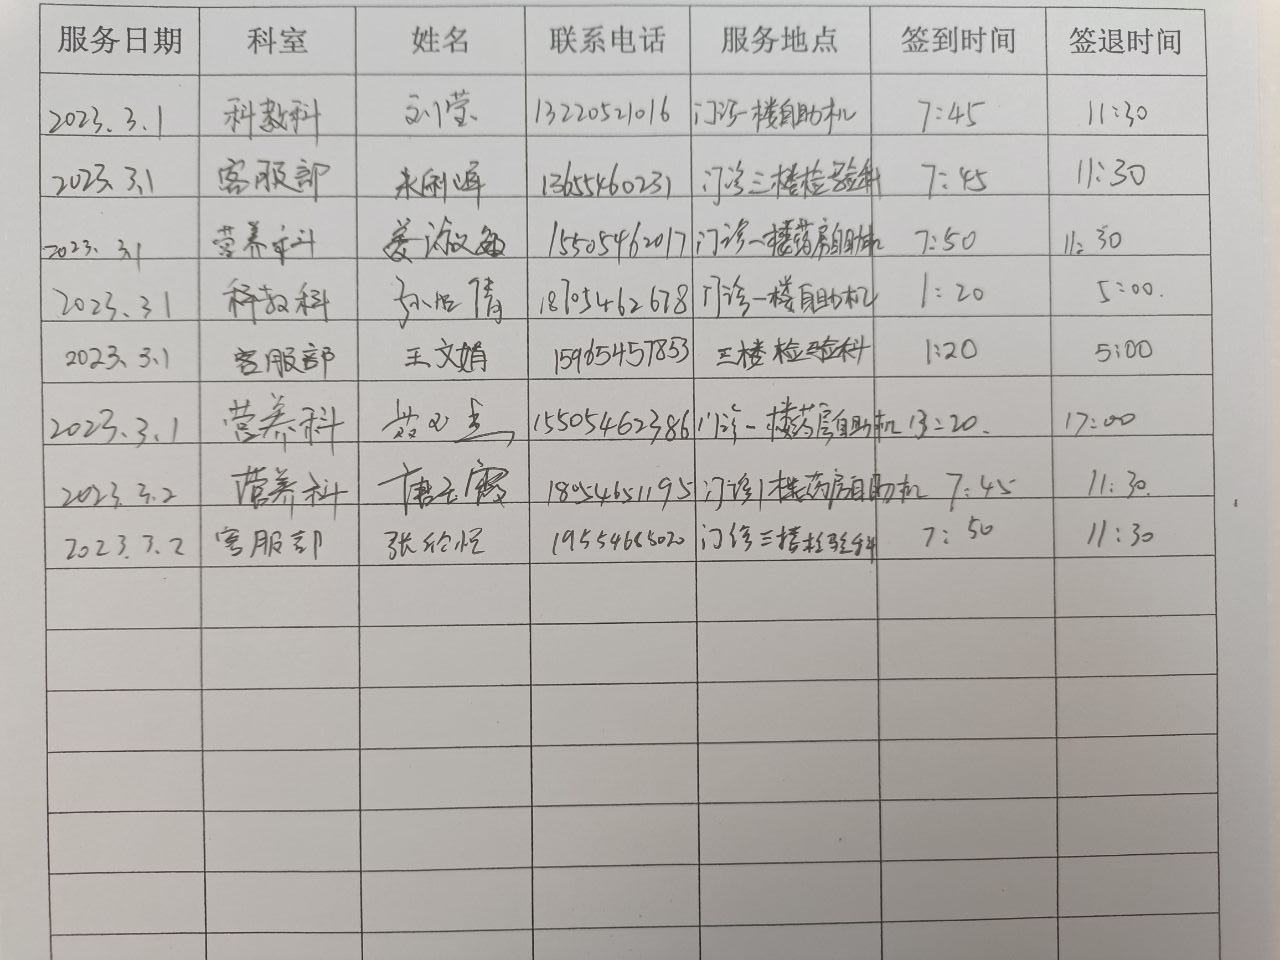 服务日期 科室 姓名 联系电话 服务地点 签到时间 签退时间
2023.3.1 科教科 刘莹 13220521016 门诊一楼自助机 7:45 11:30
2023.3.1 客服部 13655460231 门诊三楼检验科 7:45 11:30
2023.3.1 营养科 姜淑敏 15505462017 门诊一楼药房自助机 7:50 11:30
2023.3.1 科教科 18705462678 门诊一楼自助机 1:20 5:00.
2023.3.1 客服部 王文娟 15965457853 三楼检验科 1:20 5:00
2023.3.1 营养科 15505462386 门诊一楼药房自助机 13:20. 17:00
2023.3.2 营养科 18054651195 门诊1楼药房自助机 7:45 11:30.
2023.3.2 客服部 19554685020 门诊三楼检验科 7:50 11:30